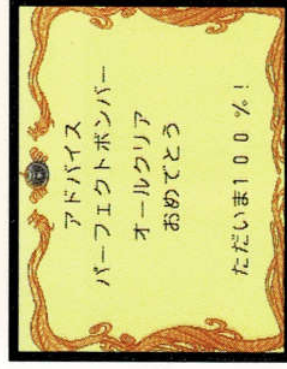 アドバイス
パーフェクトボンバー
オールクリア
おめでとう
ただいま100%!